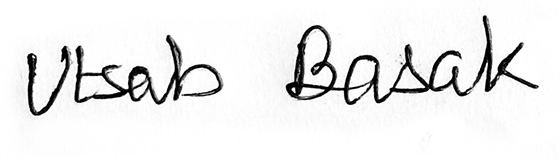 Utsab Basak